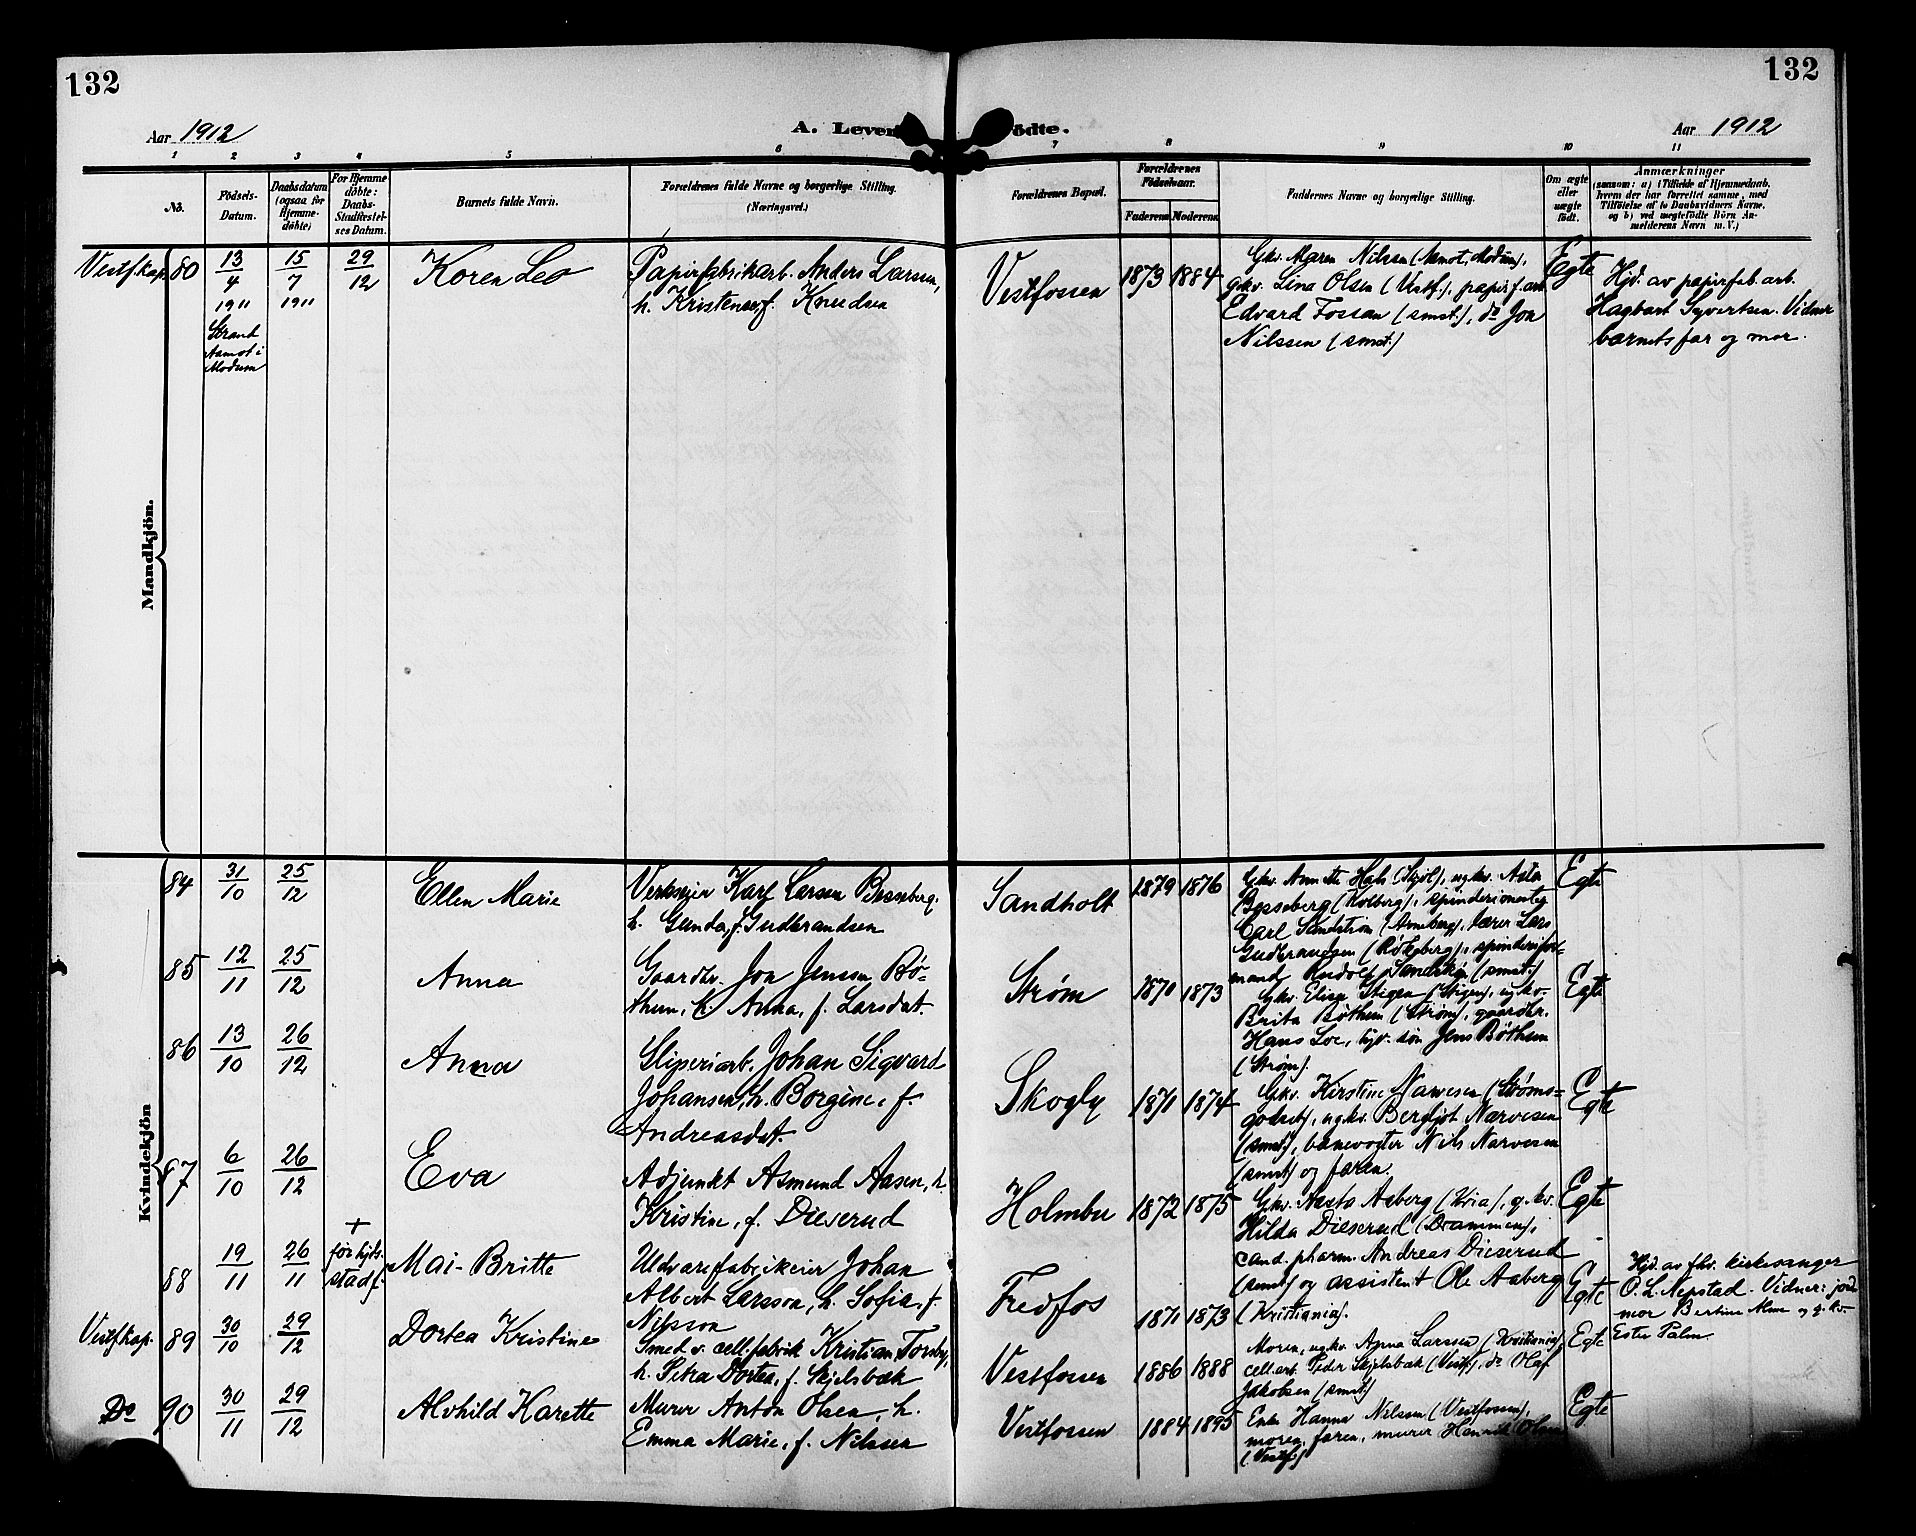 132
132
Aar 1912
A. Leven
ødte.
Aar 1912
1 2 3 4 5 6 7 8 9 10 11
No.
Fødsels-
Datum.
Daabsdatum
(ogsaa for
Hjemme-
døbte)
For Hjemme
døbte:
Daabs-
Stadfæstel-
ses Datum.
Barnets fulde Navn.
Forældrenes fulde Navne og borgerlige Stilling.
(Næringsvei.)
Forældrenes Bopæl.
Forældrenes
Fødselsaar.
Faderens Moderens
Faddernes Navne og borgerlige Stilling.
Om ægte
eller
uægte
født.
Anmærkninger
(saasom: a) i Tilfælde af Hjemmedaab,
hvem der har forrettet samme, med
Tilføielse af to Daabsvidners Navne,
og b) ved uægtefødte Børn An-
melderens Navn m. V.)
Mandkjön.
Vestf. kap. 80
13/4
1911
Strand
Aamot i
Modum
15/7
1911
29/12
Koren Leo
Papirfabrikarb. Anders Larsen,
h. Kristense, f. Knudsen
Vestfossen
1873 1884
Gkv. Maren Nilssen (Aamot, Modum),
gkv. Lina Olsen (Vestf.), papirf. arb.
Edvard Fossan (smst.), do Jon
Nilssen (smst.)
Egte
Hjd. av papirfab. arb.
Hagbart Syvertsen. Vidner
barnets far og mor.
Kvindekjön
84
31/10
25/12
Ellen Marie
Verkseier Karl Larsen Besseberg,
h. Gunda, f. Gudbrandsen
Sandholt
1879 1876
Gkv. Annette Hals (Skjøl), ugkv. Asta
Besseberg (Kolberg), spinderimester
Carl Sandstrøm (Arneberg), lærer Lars
Gudbrandsen (Røkeberg), spinderifor-
mand Rudolf (smst.)
Egte
85
12/11
25/12
Anna
Gaardbr. Jon Jensen Bø-
thun, h. Anna, f. Larsdat.
Strøm
1870 1873
Gkv. Elise Stigen (Stigen), ugkv.
Brita Bøthun (Strøm), gaardbr.
Hans Loe, hjv. søn Jens Bøthun
(Strøm).
Egte
86
13/10
26/12
Anna
Sliperiarb. Johan Sigvard
Johansen, h. Borgine, f.
Andreasdat.
Skogly
1871 1874
Gkv. Kirstine Narvesen (Strøms-
godset), ugkv. Bergljot Narvesen
(smst.), banevogter Nils Narvesen
(smst) og faren.
Egte
87
6/10
26/12
Eva
Adjunkt Asmund Aasen, h.
Kristine, f. Dieserud
Holmbu
1872 1875
Gkv. Aasta Aaberg (Kria), gkv.
Hilda Dieserud (Drammen),
cand. pharm. Andreas Dieserud
(smst) og assistent Ole Aaberg
(Kristiania).
Egte
88
19/11
26/11
+
før kjrk.
stadf.
Mai-Britte
Uldvarefabrikeier Johan
Albert Larsson, h. Sofia, f.
Nilsson
Fredfos
1871 1873
Egte
Hjd. av fhv. kirkesanger
O. L. Nepstad. Vidner: jord
mor Bertine Moe og gkv.
Ester Palm
Vestf kap. 89
30/10
29/12
Dortea Kristine
Smed v. cell. fabrik Kristian Forsby,
h. Petra Dortea, f. Skjelsbæk
Vestfossen
1886 1888
Moren, ugkv. Anna Larssen (Kristiania),
cell. arb. Peder Skjelsbæk (Vestf), do Olaf
Jakobsen (smst)
Egte
Do 90
30/11
29/12
Alvhild Karette
Murer Anton Olsen, h.
Emma Marie, f. Nilssen
Vestfossen
1884 1895
Enke Hanna Nilssen (Vestfossen),
moren, faren, murer Henrik Olsen
(Vestf.)
Egte